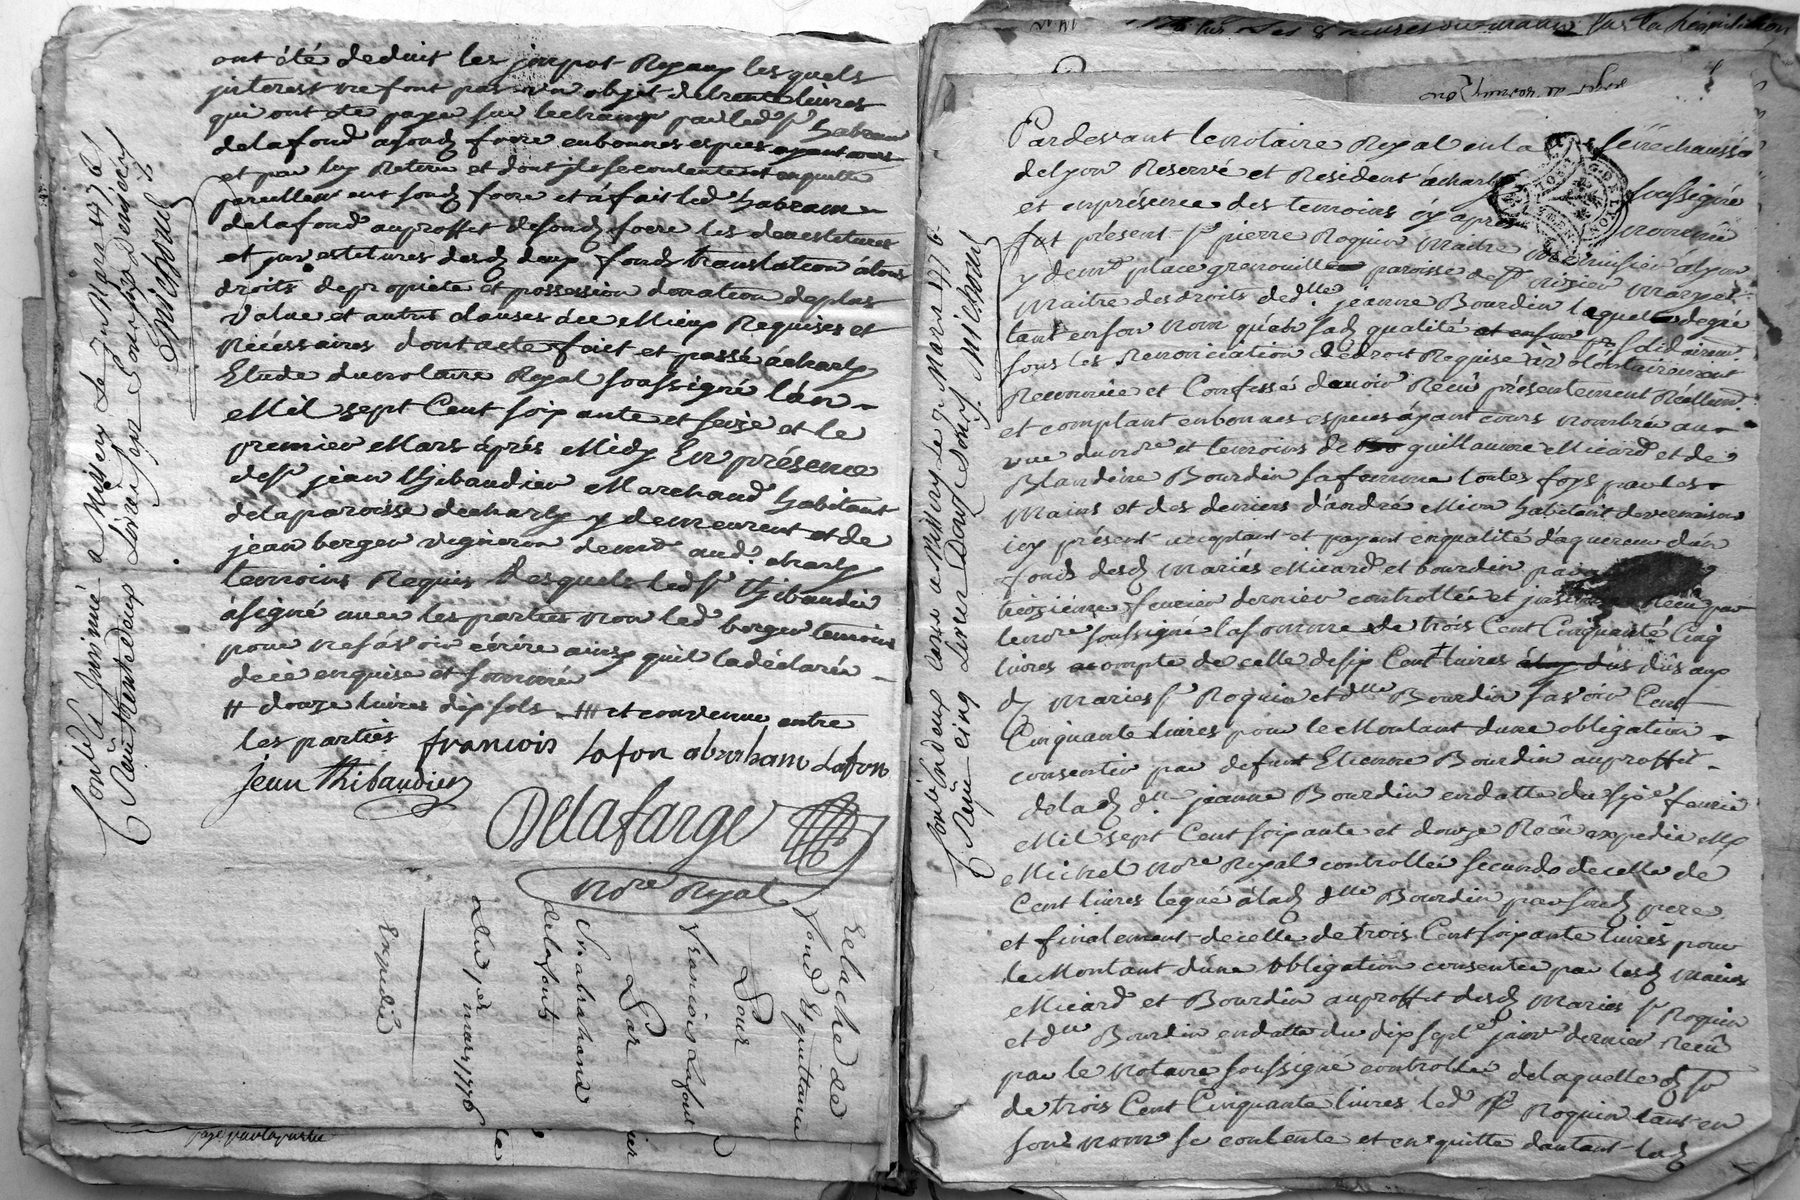 ont été deduit les
interest ne font pas un objet de trente livres
qui ont été payé sur lechange par led. sr. habram
delafond asond. frere en bonnes especes ayant cours
et par luy Retenu et dont il se contente et enquitte
pareillement sond. frere et à fait led. habram
delafond au proffit desond. frere les devestitures
et investitures desd. deux fonds translation de tous
droits de propriété et possession donation de plus
value et autres clauses de Mieux Requises et
Nécessaires dont acte fait et passé à charly
Etude du notaire Royal soussigné l'an
Mil sept Cent soixante et seize et le
premier Mars après Midy En présence
de sr. jean thibaudier Marchand habitant
de la paroisse de charly y demeurent et de
jean berger vigneron demt. aud. charly
temoins Requis desquels led. sr. thibaudier
à signé avec les parties non led. berger temoin
pour ne savoir écrire ainsy qu'il la déclaré
de ce enquis et sommé
# douze livres dix sols # et convenu entre
les parties francois lafon abraham Lafon
jean thibaudier
Delafarge
Nore. Royal
Controllé à Millery Le Mars 1776
Reçu trente deux Livres
Michoud
Relache de
fond Et quittance
Pour
francois Lafont
Par
Sr. abraham
delafont
du 1er mars 1776
Expedié
payé par la partie
Pardevant le notaire Royal en la sénéchaussée
de Lyon Reservé et Resident à charly soussigné
et en présence des temoins cy après nommés
fut présent sr. pierre Roquin Maitre Menuisier à lyon
y demt. place grenouille paroisse de st. nizier Mary et
Maitre des droits de dlle. jeanne Bourdin lequel de gré
tant en son nom qu'en sad. qualité et en son solidairemt.
sous les Renonciation de droit Requise volontairement
Reconnu et Confessé d'avoir Reçu présentement Reellemt.
et comptant en bonnes especes ayant cours nombrée au
vue du nore. et temoins de guillaume Micard et de
Blandine Bourdin sa femme toutes foys par les
Mains et des deniers d'andré Mion habitant de vernaison
icy présent acceptant et payant en qualité d'aquereur d'un
fonds desd. Mariés Micard et bourdin par
treizieme fevrier dernier controllée et Reçu par
le nore. soussigné la somme de trois Cent Cinquante Cinq
livres acompte de celle de six Cent livres dûs aux
d. Mariés sr. Roquin et dlle. Bourdin savoir Cent
Cinquante livres pour le Montant d'une obligation
consentie par defunt Etienne Bourdin au proffit
de lad. dlle. jeanne Bourdin en datte du fevrier
Mil sept Cent soixante et douze Reçû expedié Me
Michel Nore. Royal controllée secundo de celle de
Cent livres legué à lad. dlle. Bourdin par sond. pere
et finalement de celle de trois Cent soixante livres pour
le Montant d'une obligation consentie par lesd. Mariés
Micard et Bourdin au proffit desd. Mariés sr. Roquin
et dlle. Bourdin en datte du dix sept janv. dernier Reçû
par le Notaire soussigné controllée de laquelle d. so
de trois Cent Cinquante livres led. sr. Roquin tant en
son nom se contente et en quitte d'autant lesd.
Controllé à Millery le 9 Mars 1776
Reçu cinq Livres Douze Sous
Michoud